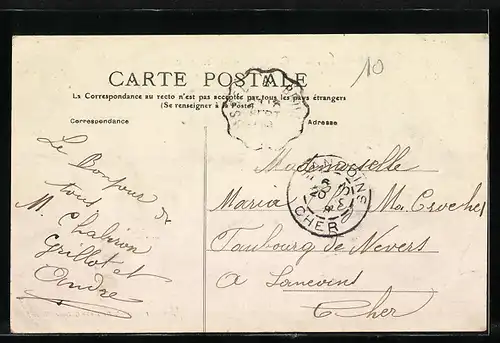 10
CARTE POSTALE
La Correspondance au recto n'est pas acceptée par tous les pays étrangers
(Se renseigner à la Poste)
Correspondance
Adresse
Le Bonjour de
tous
M. Chabiron
Grillot et
André
SANCOINS
CHER
Mademoiselle
Maria
Faubourg de Nevers
A Sancoins
Cher